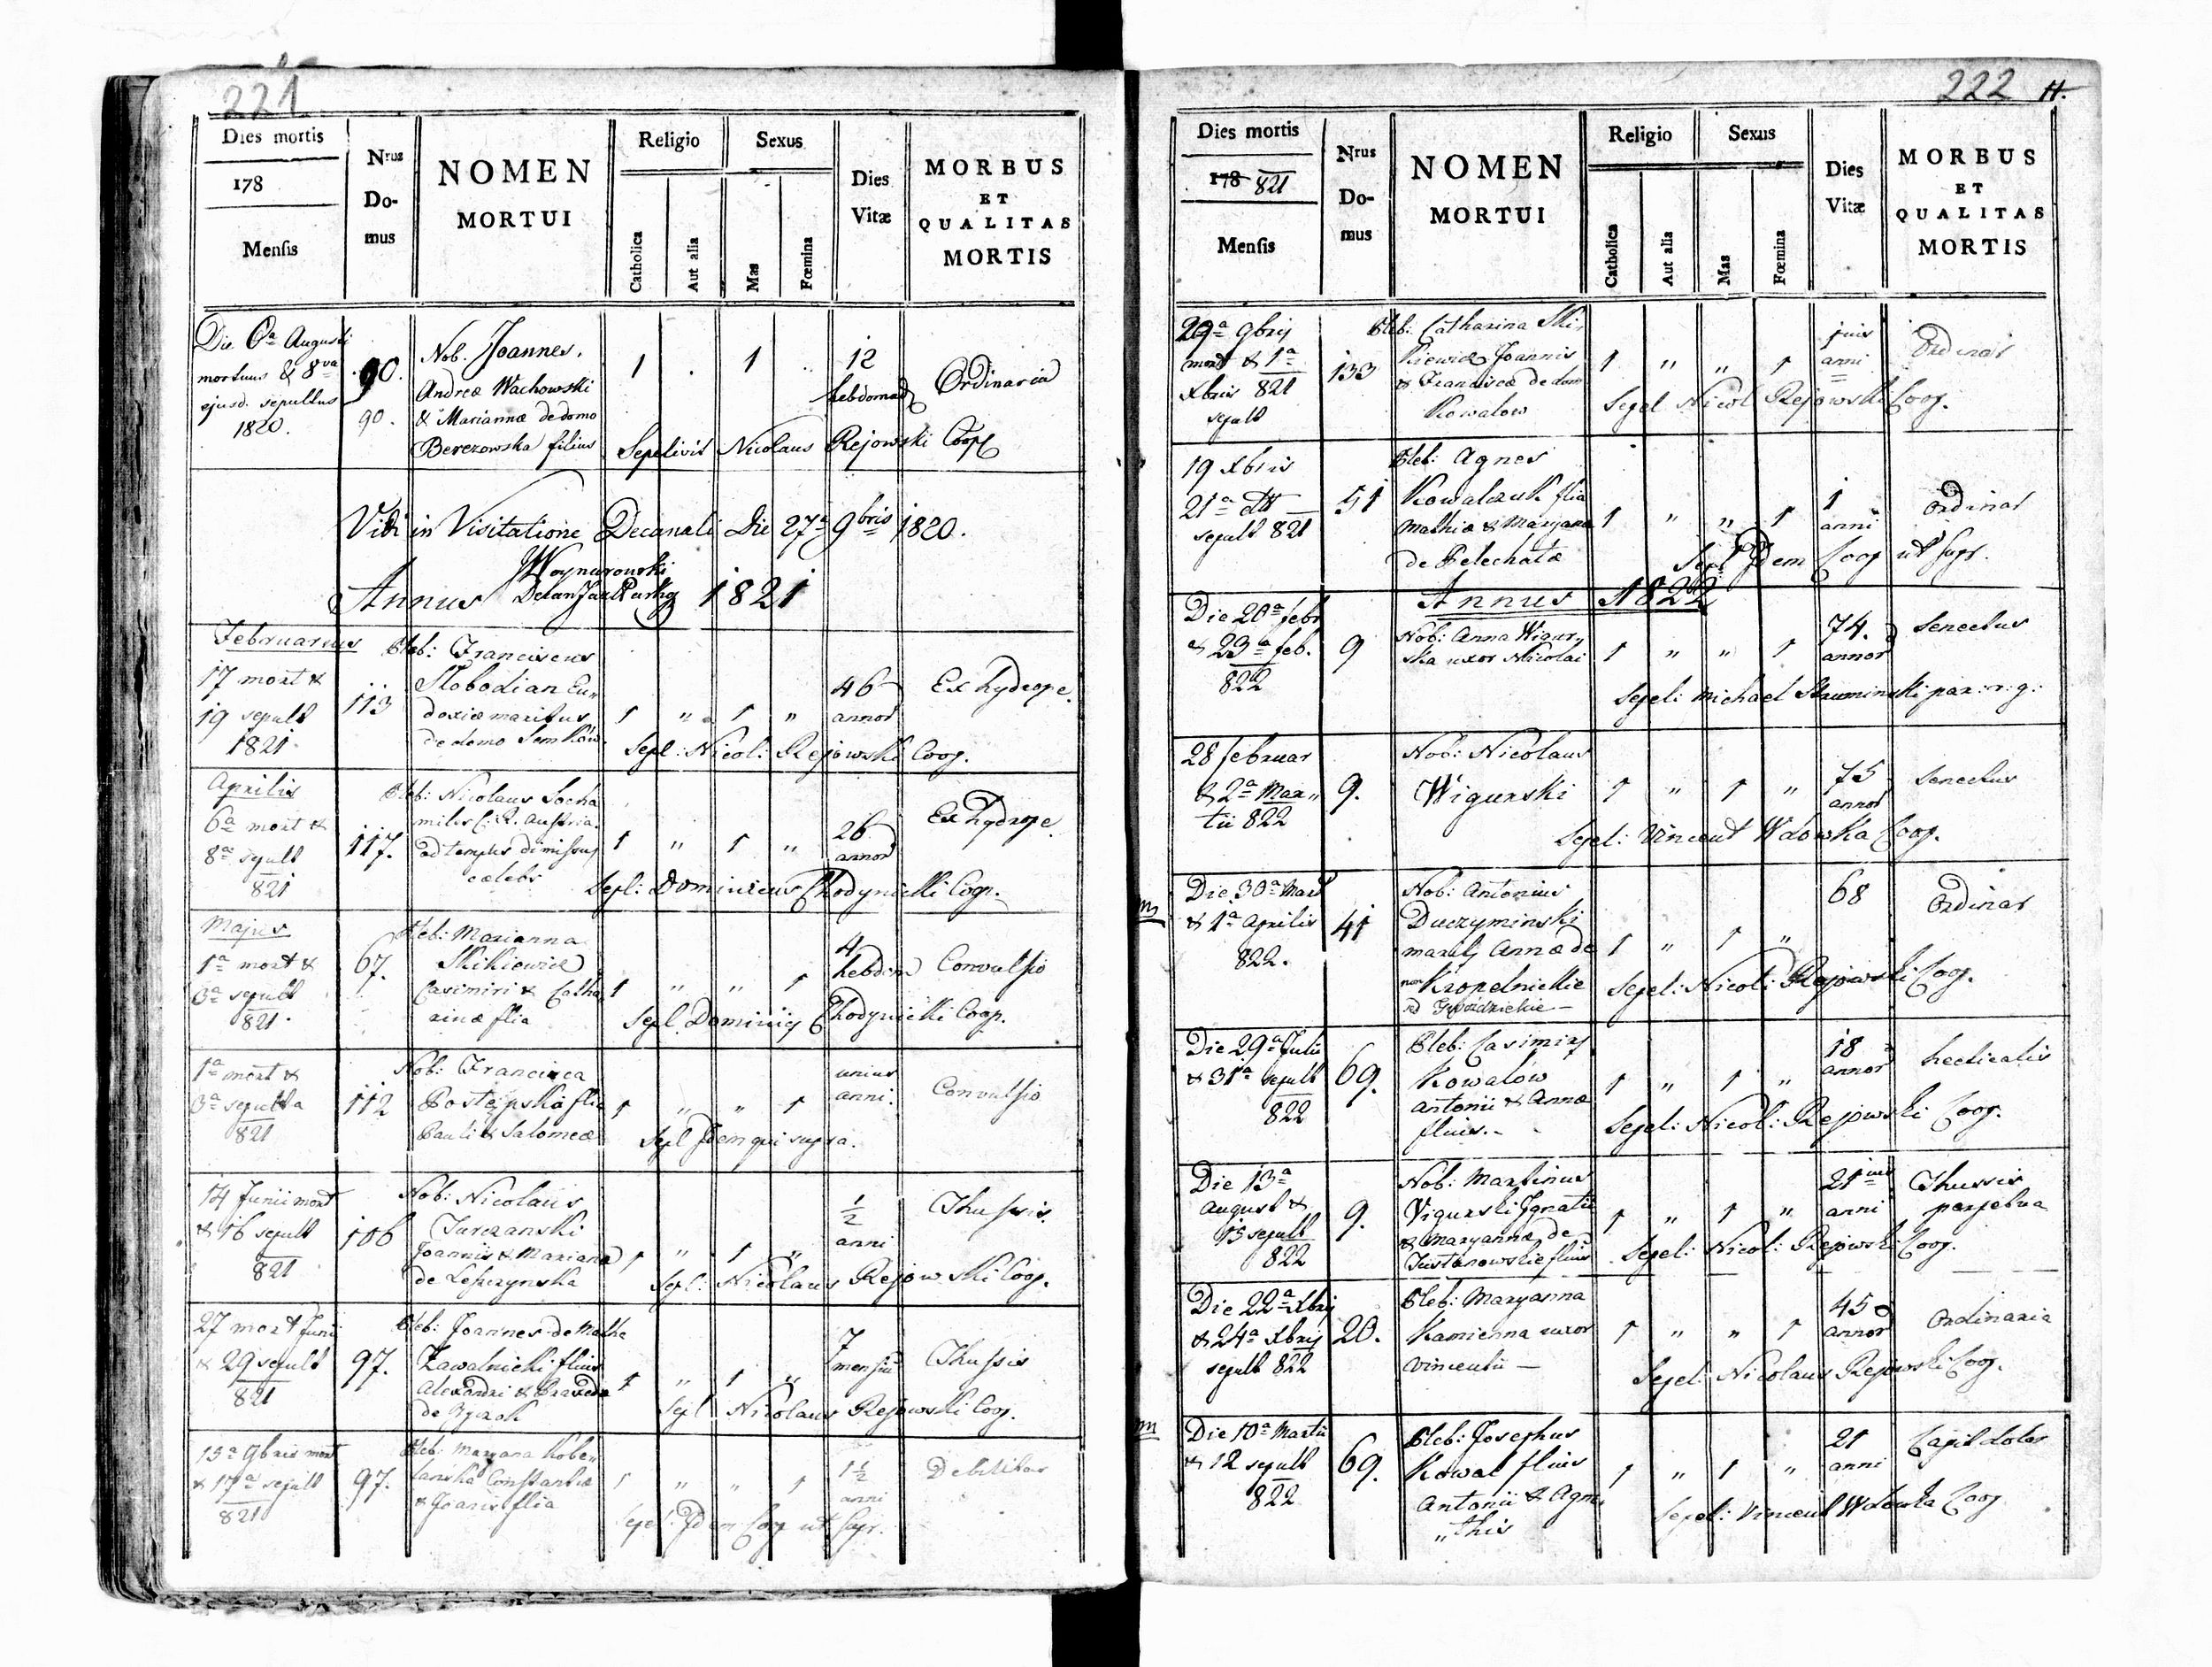 221
Dies mortis
178
Mensis
Nrus
Do-
mus
NOMEN
MORTUI
Religio
Catholica
Aut alia
Sexus
Mas
Fœmina
Dies
Vitæ
MORBUS
ET
QUALITAS
MORTIS
Die 6a Augusti
mortuus & 8va
ejusd. sepultus
1820.
90.
90.
Nob. Joannes,
Andreæ Wachowski
& Mariannæ de domo
Berezowska filius
1 . 1 ..
12
hebdomad
Ordinaria
Sepelivit Nicolaus Rejowski Coop
Vidi in Visitatione Decanali Die 27a 9bris 1820.
Woynarowski
Annus 1821
Februarius
17 mort &
19 sepult
1821.
113
Pleb: Franciscus
Slobodian Eu„
doxiæ maritus
de domo Semkow
1 „ 1 „
46
annor
Ex hydrope.
Sepl: Nicol: Rejowski Coop.
Aprilis
6a mort &
8a sepult
821
117.
Pleb: Nicolaus Socha
miles C: R: Austria.
ad tempus dimissus
celebs
1 „ 1 „
26
annor
Ex hydrope
Sepl: Dominicus Chodynicki Coop.
Majus
1a mort &
3a sepult
821.
67.
Pleb: Marianna
Skikiewicz
Casimiri & Catha
rinæ flia
1 „ „ 1
4
hebdom
Convulsio
Sepl Dominiq Chodynicki Coop.
1a mort &
3a sepulta
821
112
Nob: Francisca
Postępska flia
Pauli & Salomeæ
1 „ „ 1
unius
anni.
Convulsio
Sepl Idem qui supra.
14 Junii mort
& 16 sepult
821
106
Nob: Nicolaus
Turczanski
Joannis & Mariana
de Leszczynska
1 „ 1 „
½
anni
Thussis.
Sepl: Nicolaus Rejowski Coop.
27 mort Junii
& 29 sepult
821
97.
Pleb: Joannes de Matha
Zawalnicki flius
Alexandri &
1 „ 1 „
7
mensiu
Thussis
Sepl Nicolaus Rejowski Coop.
15a 9bris mort
& 17a sepult
821
97.
Pleb: Maryana Kobe„
lanska Constantiæ
& Joannis flia
1 „ „ 1
1½
anni
Debilitas
Sepel: Idem Coop ut Supr.
222 H.
Dies mortis
178 821
Mensis
Nrus
Do-
mus
NOMEN
MORTUI
Religio
Catholica
Aut alia
Sexus
Mas
Fœmina
Dies
Vitæ
MORBUS
ET
QUALITAS
MORTIS
29a 9brij
mort & 1a
Xbris 821
sepult
133
Pleb: Catharina Ski„
kiewicz Joannis
& Francisca de domo
Kowalow
1 „ „ 1
anni
Ordinar
Sepel Nicol Rejowski Coop.
19 Xbris
21a dtt
sepult 821
51
Pleb: Agnes
Kowalczuk flia
Mathiæ & Maryana
de Pelechatæ
1 „ „ 1
1
anni
Ordinar
Sepl Idem Coop ut Supr.
Annus 1822
Die 20a febr
& 23a feb.
822
9
Nob: Anna Wigur„
ska uxor Nicolai
1 „ „ 1
74.
annor
Senectus
Sepel: Michael Skuminski par: r: g:
28 februar
& 2a Mar„
tii 822
9.
Nob: Nicolaus
Wigurski
1 „ 1 „
75
annor
Senectus
Sepel: Vincent Wdowka Coop.
m
Die 30a Mart
& 1a Aprilis
822.
41
Nob: Antonius
Duczyminski
maritq Annæ de
Kropelnickie
1 „ 1 „
68
Ordinar
Sepel: Nicol: Rejowski Coop.
Die 29a Julii
& 31a sepult
822
69.
Pleb: Casimirq
Kowalow
Antonii & Annæ
flius.-
1 „ 1 „
18
annor
hecticalis
Sepel: Nicol: Rejowski Coop.
Die 13a
August &
15 sepult
822
9.
Nob: Martinus
Vigurski Ignatii
& Maryannæ de
Tustanowskie flius
1 „ 1 „
21ius
anni
Thussis
perpetua
Sepel: Nicol: Rejowski Coop.
Die 22a Xbrij
& 24a Xbrij
sepult 822
20.
Pleb: Maryanna
Kamienna uxor
Vincentii —
1 „ „ 1
45
annor
Ordinaria
Sepel: Nicolaus Rejowski Coop.
m
Die 10a Martii
& 12 sepult
822
69.
Pleb: Josephus
Kowal flius
Antonii & Agne
„this
1 „ 1 „
21
anni
Capit dolor
Sepel: Vincent Wdowka Coop